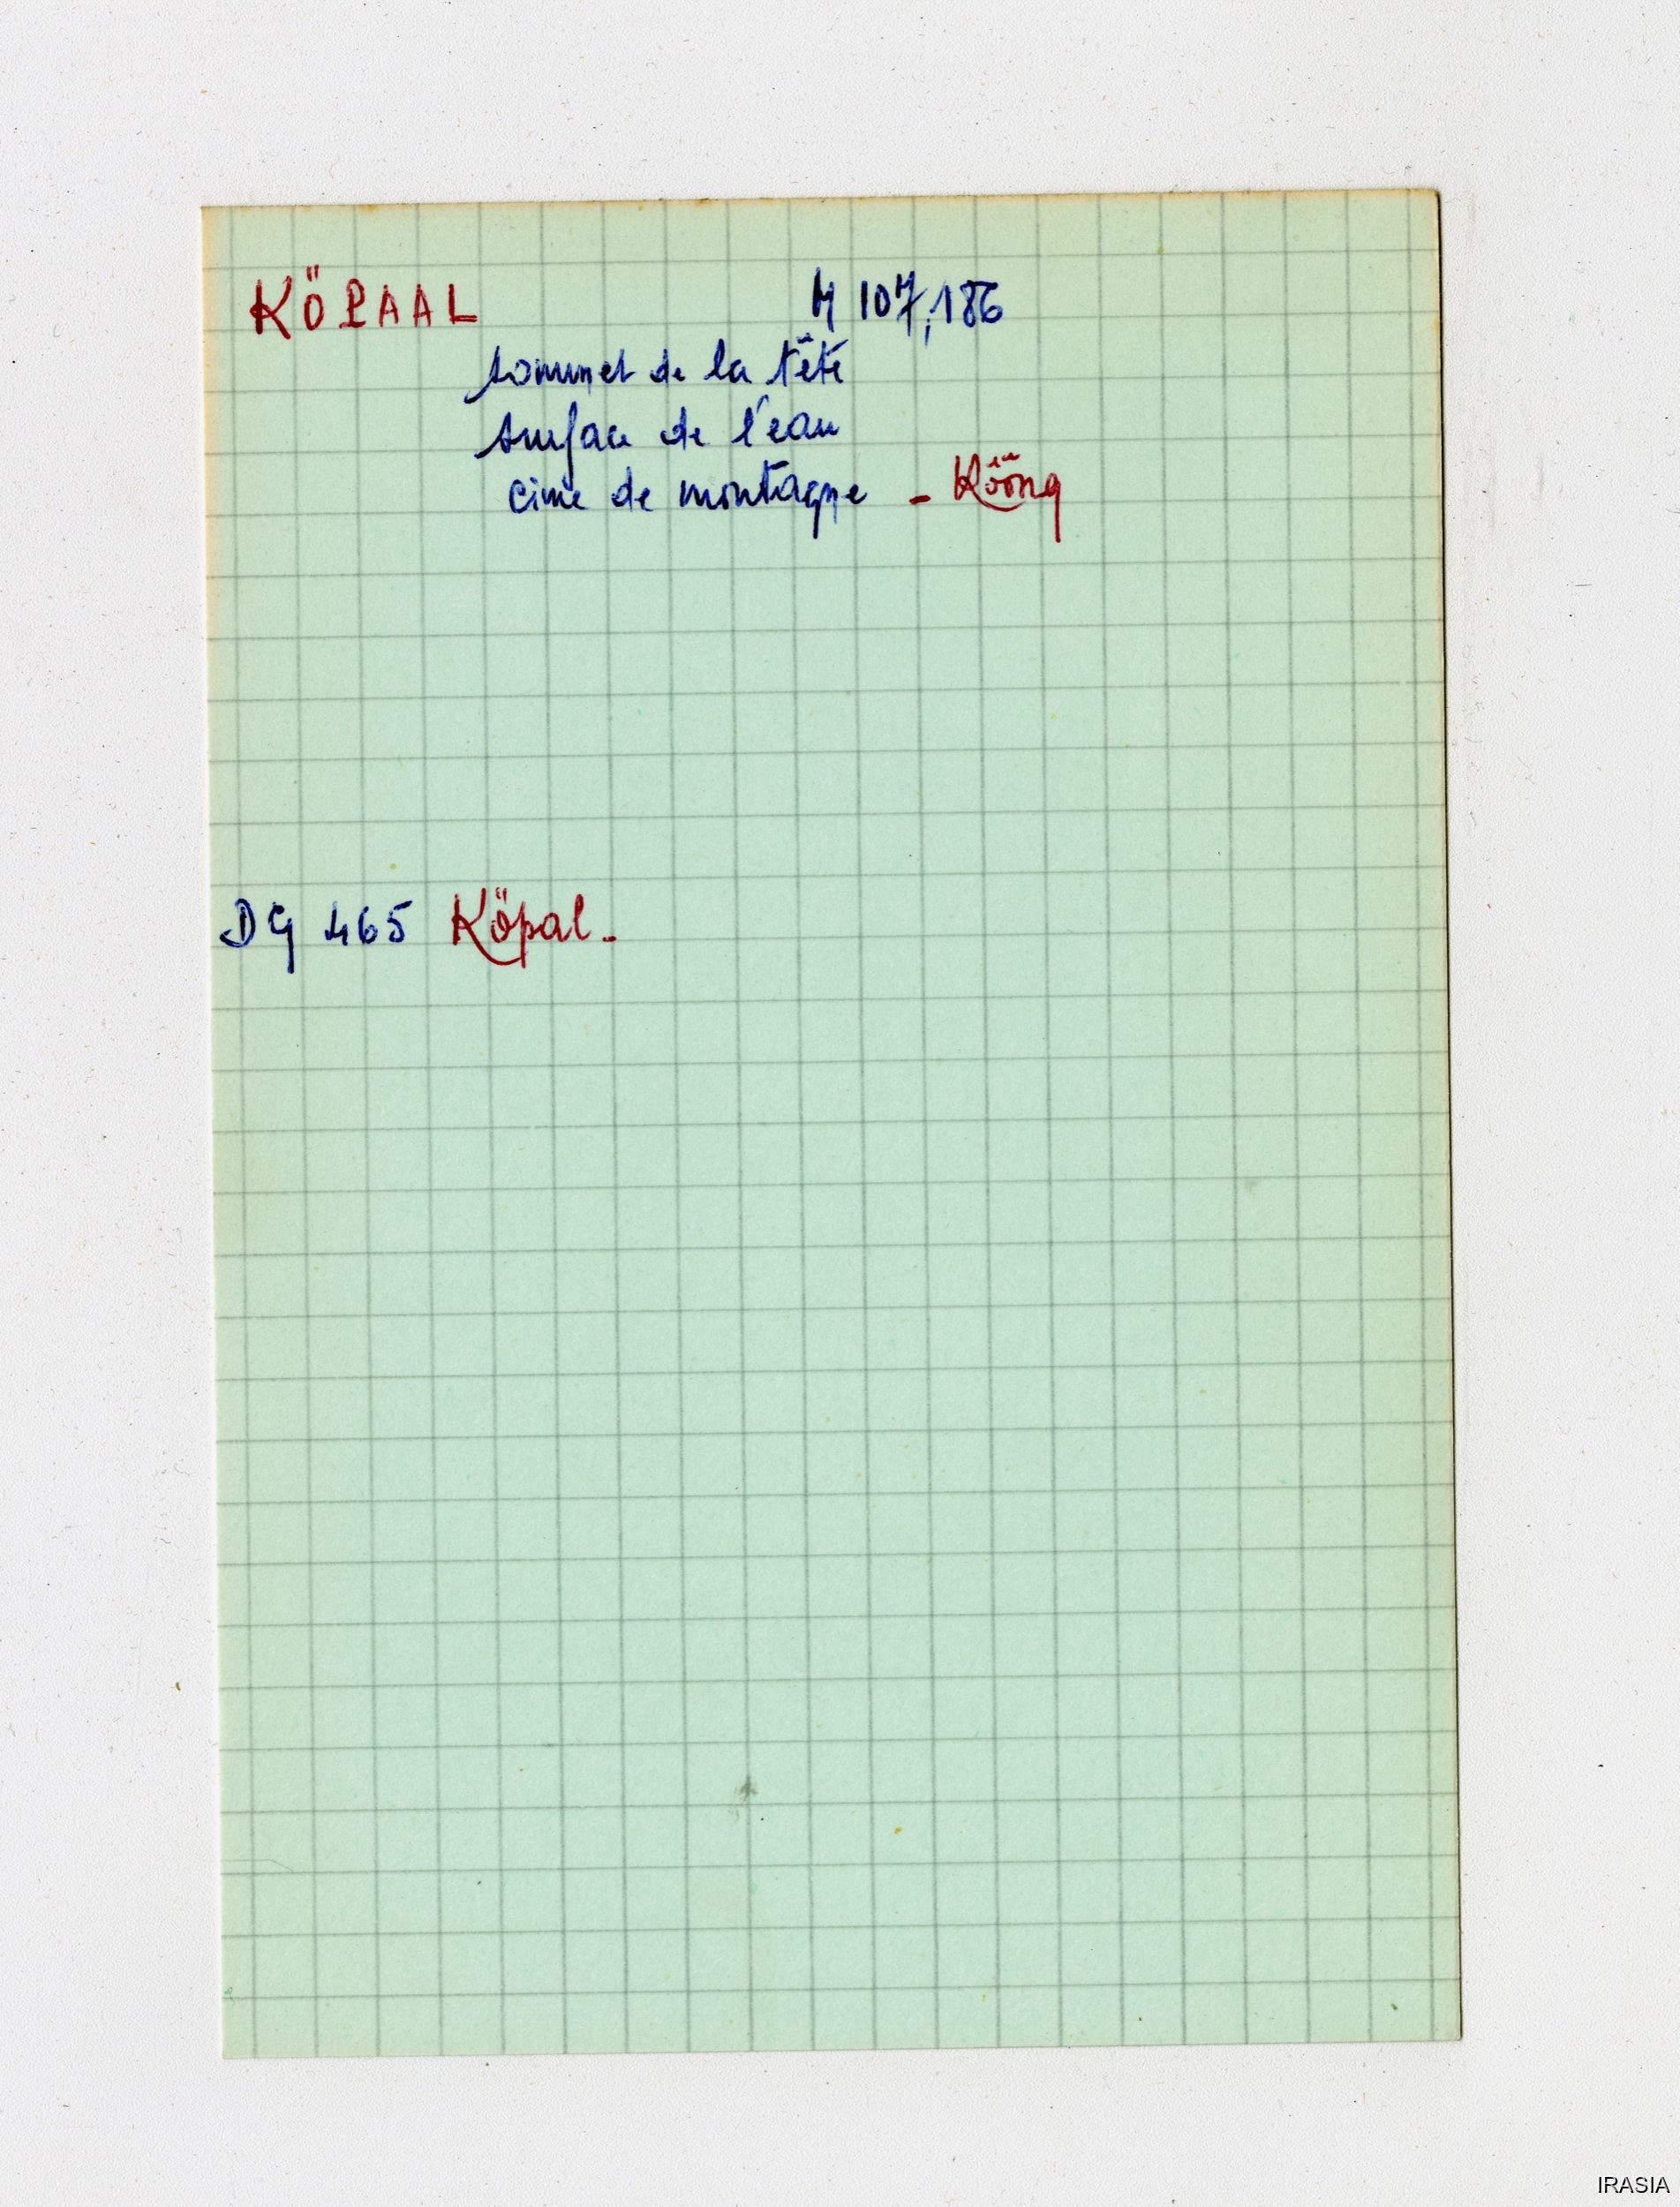 KÖPAAL M 107,186
sommet de la tête
surface de l'eau
cime de montagne - Kööng
DG 465 Köpal.
IRASIA